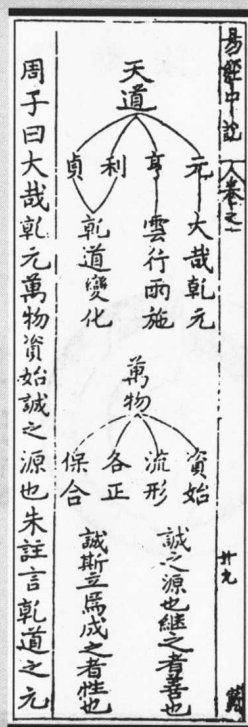 易經中說 卷之一
天道
元 亨 利 貞
大哉乾元
雲行雨施
乾道變化
萬物
資始 流形 各正 保合
誠之源也繼之者善也
誠斯立焉成之者性也
廿九
周子曰大哉乾元萬物資始誠之源也朱註言乾道之元